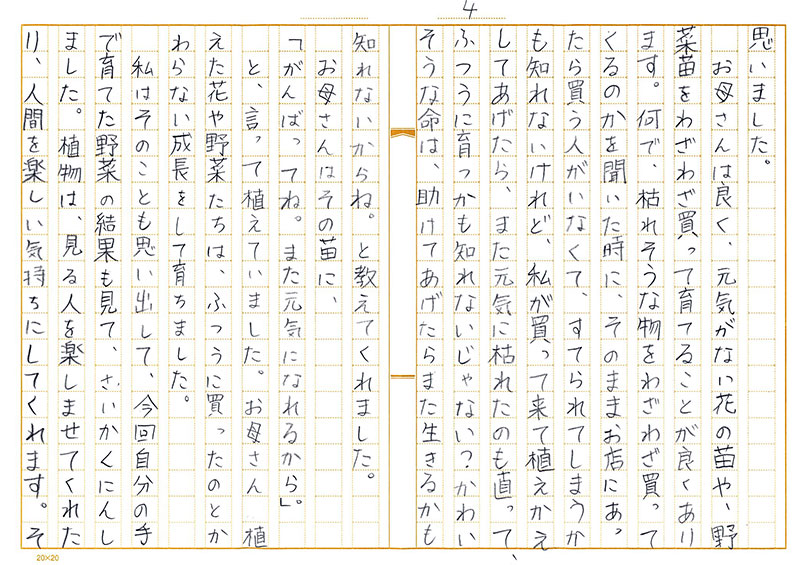 4
思いました。
お母さんは良く、元気がない花の苗や、野
菜苗をわざわざ買って育てることが良くあり
ます。何で、枯れそうな物をわざわざ買って
くるのかを聞いた時に、そのままお店にあっ
たら買う人がいなくて、すてられてしまうか
も知れないけれど、私が買って来て植えかえ
してあげたら、また元気に枯れたのも直って、
ふつうに育つかも知れないじゃない?かわい
そうな命は、助けてあげたらまた生きるかも
知れないからね。と教えてくれました。
お母さんはその苗に、
「がんばってね。また元気になれるから」。
と、言って植えていました。お母さん 植
えた花や野菜たちは、ふつうに買ったのとか
わらない成長をして育ちました。
私はそのことも思い出して、今回自分の手
で育てた野菜の結果も見て、さいかくにんし
ました。植物は、見る人を楽しませてくれた
り、人間を楽しい気持ちにしてくれます。そ
20×20